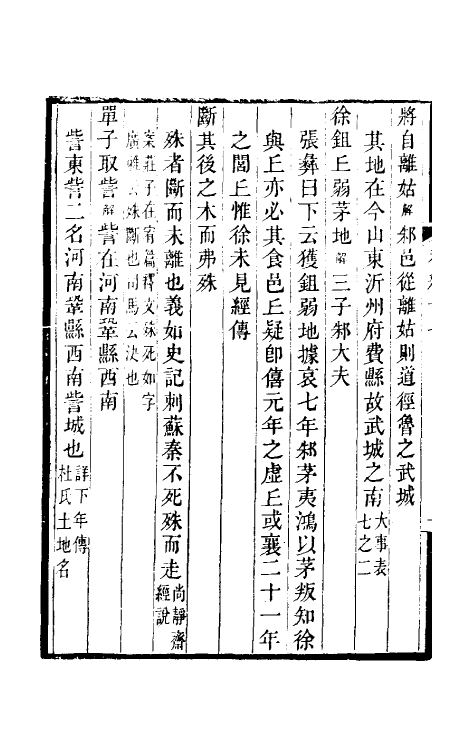 將自離姑解邾邑從離姑則道徑魯之武城
其地在今山東沂州府費縣故武城之南大事表七之二
徐鉏丘弱茅地解三子邾大夫
張彝曰下云獲鉏弱地據哀七年邾茅夷鴻以茅叛知徐
與丘亦必其食邑丘疑卽僖元年之虛丘或襄二十一年
之閭丘惟徐未見經傳
斷其後之木而弗殊
殊者斷而未離也義如史記刺蘇秦不死殊而走尚靜齋經說
案莊子在宥篇釋文殊死如字
廣雅云殊斷也司馬云決也
單子取訾解訾在河南鞏縣西南
訾東訾二名河南鞏縣西南訾城也詳下年傳杜氏土地名